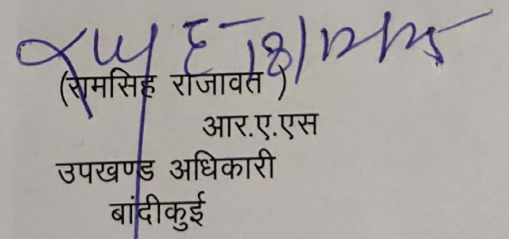 (रामसिह राजावत )
आर.ए.एस
उपखण्ड अधिकारी
बांदीकुई